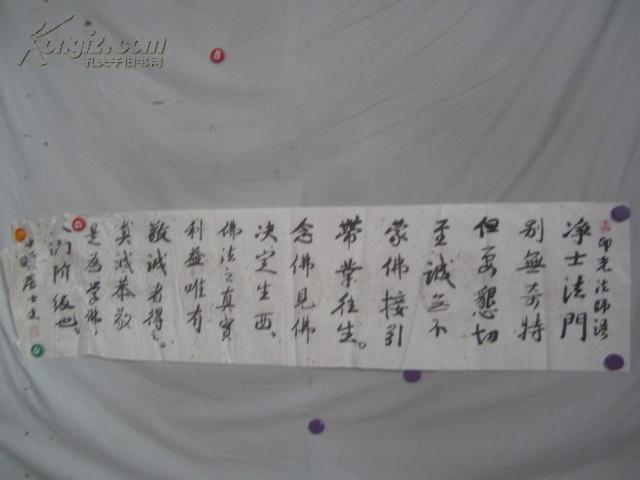 印光法師語
凈土法門
別無奇特
但要懇切
至誠無不
蒙佛接引
帶業往生。
念佛見佛
决定生西、
佛法之真實
利益唯有
敬誠者得之。
真誠恭敬
是為學佛
入门階级也、
居士
Kongfz.com
孔夫子旧书网